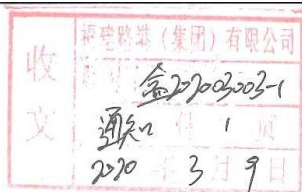 收文
福建路港（集团）有限公司
金202003003-1
通知 1 页
2020 年 3 月 9 日